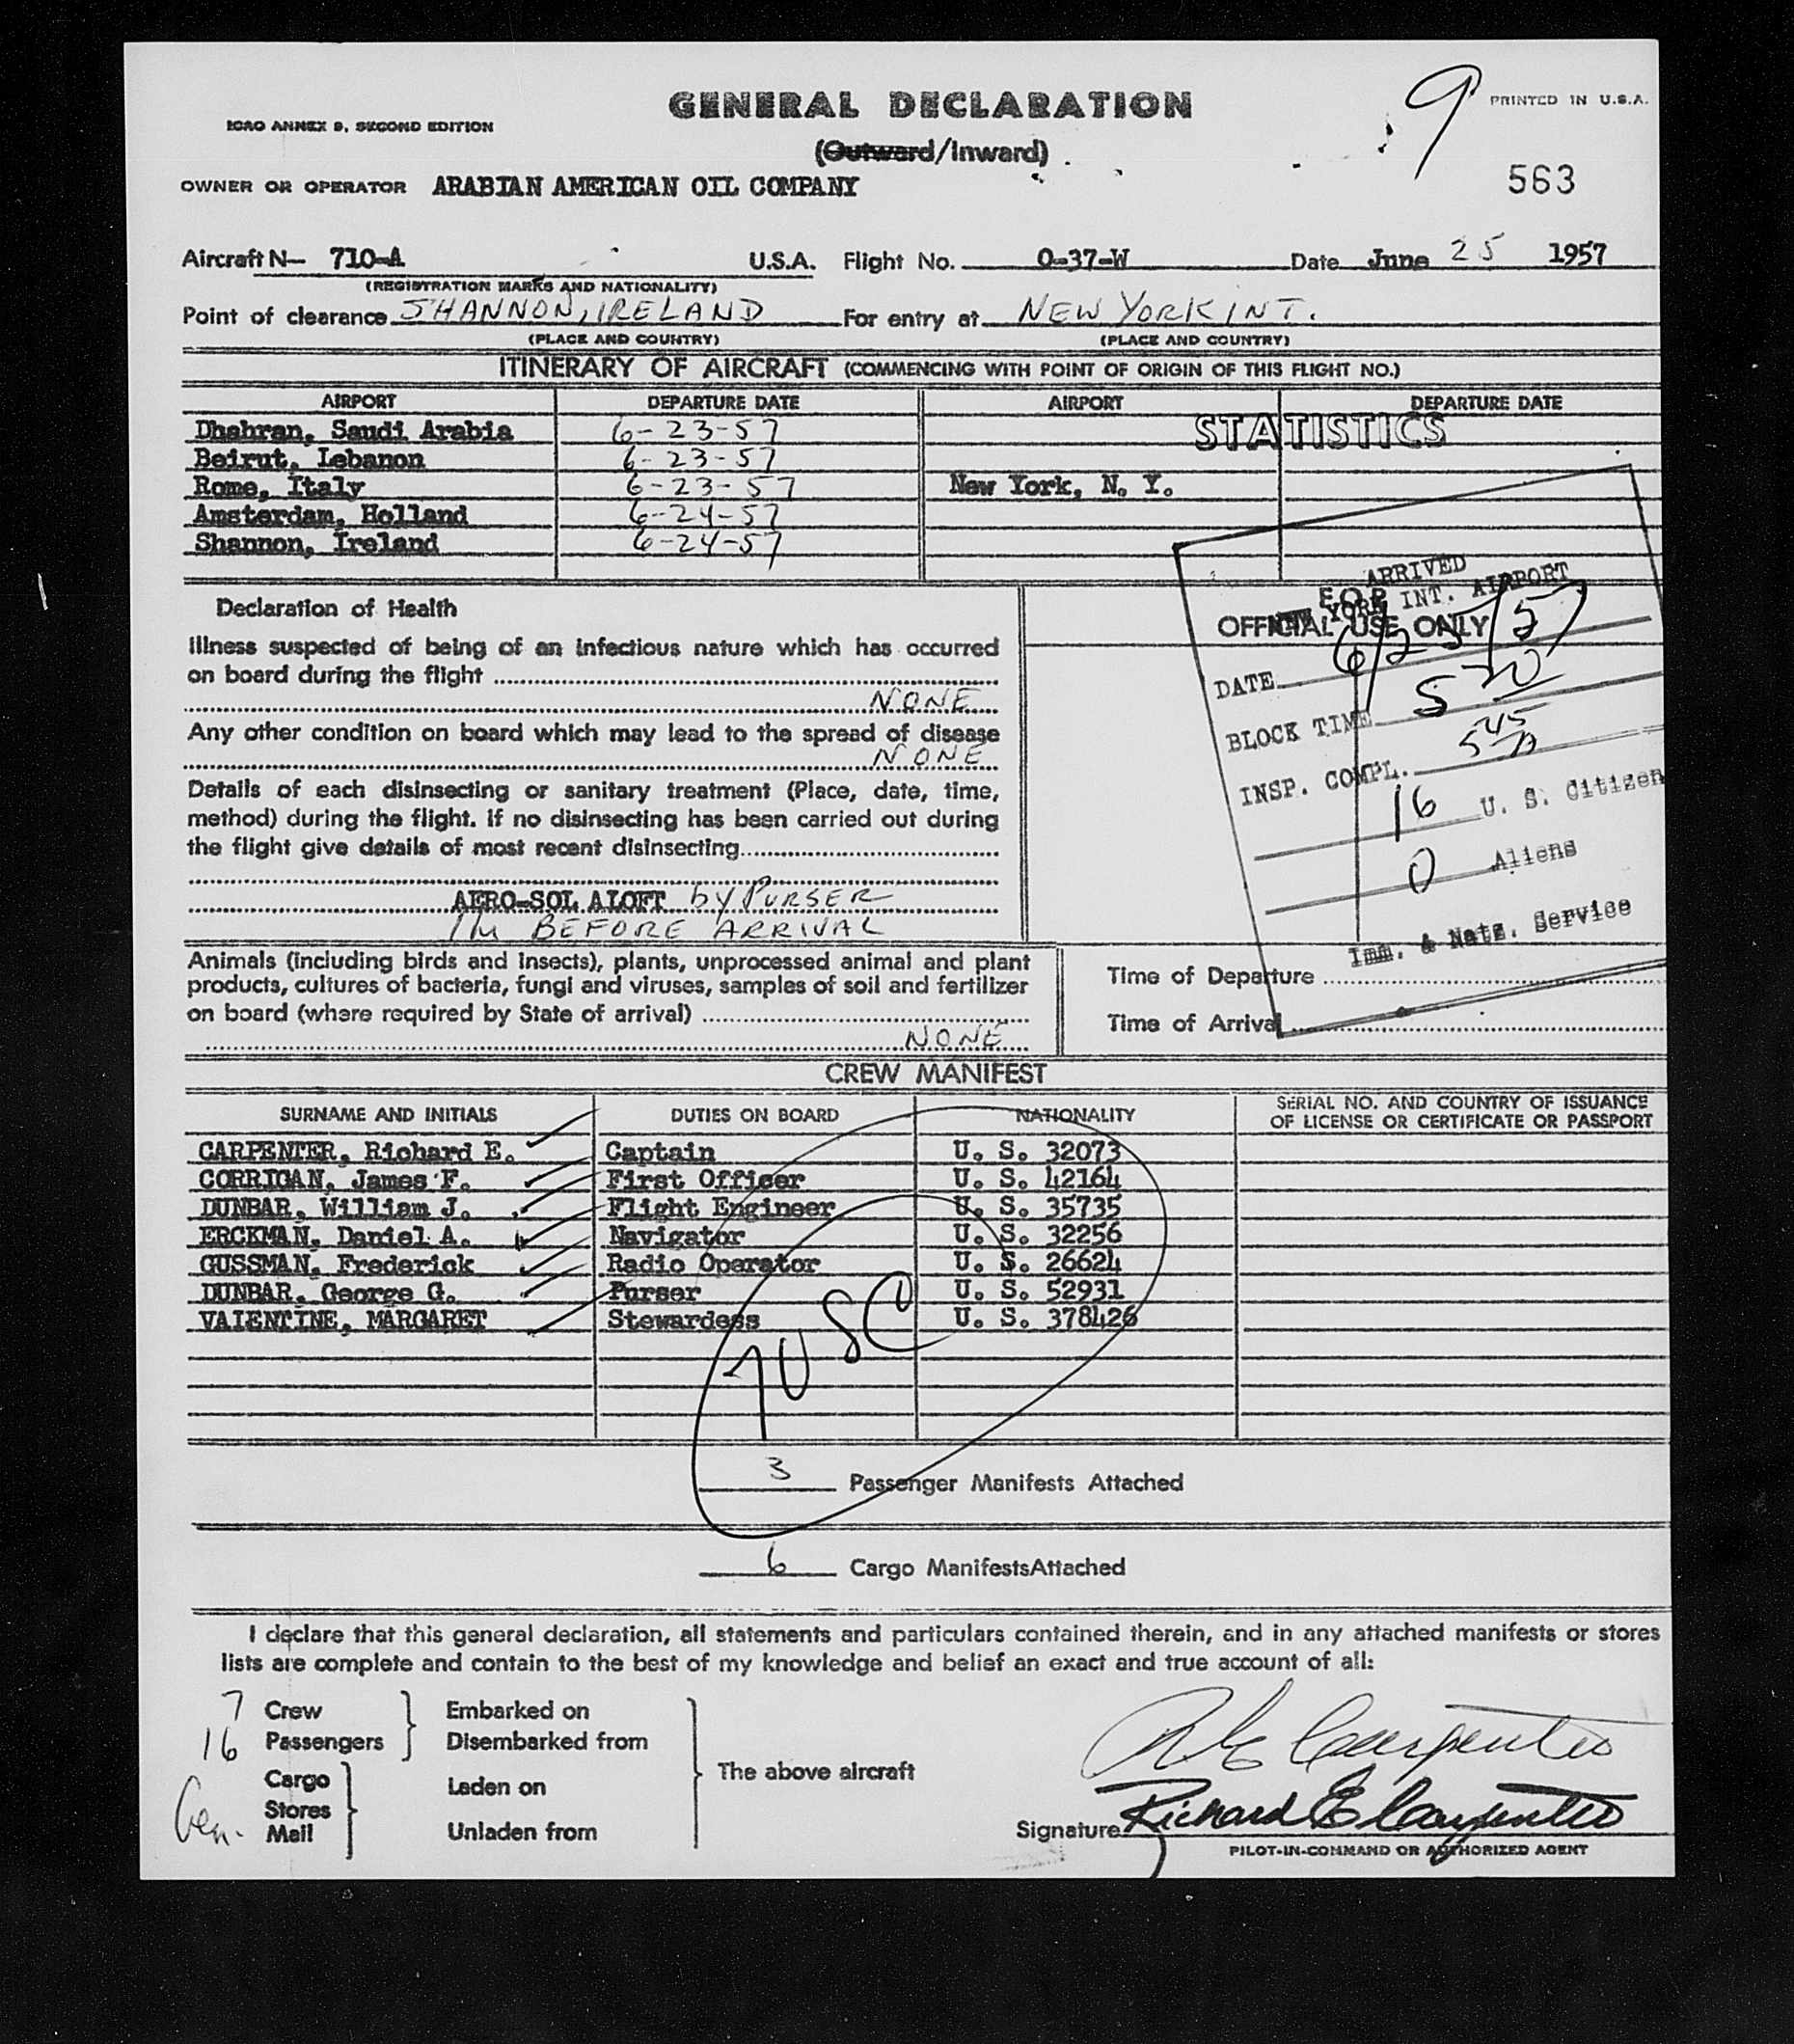 GENERAL DECLARATION
ICAO ANNEX 9, SECOND EDITION
PRINTED IN U.S.A.
9
(Outward/Inward)
563
OWNER OR OPERATOR ARABIAN AMERICAN OIL COMPANY
Aircraft N— 710-A U.S.A. Flight No. O-37-W Date June 25 1957
(REGISTRATION MARKS AND NATIONALITY)
Point of clearance SHANNON, IRELAND For entry at NEW YORK INT.
(PLACE AND COUNTRY) (PLACE AND COUNTRY)
ITINERARY OF AIRCRAFT (COMMENCING WITH POINT OF ORIGIN OF THIS FLIGHT NO.)
AIRPORT DEPARTURE DATE AIRPORT DEPARTURE DATE
Dhahran, Saudi Arabia 6-23-57 STATISTICS
Beirut, Lebanon 6-23-57
Rome, Italy 6-23-57 New York, N. Y.
Amsterdam, Holland 6-24-57
Shannon, Ireland 6-24-57
Declaration of Health
Illness suspected of being of an infectious nature which has occurred
on board during the flight
NONE
Any other condition on board which may lead to the spread of disease
NONE
Details of each disinsecting or sanitary treatment (Place, date, time,
method) during the flight. If no disinsecting has been carried out during
the flight give details of most recent disinsecting
AERO-SOL ALOFT by PURSER
BEFORE ARRIVAL
FOR
OFFICIAL USE ONLY
ARRIVED
NEW YORK INT. AIRPORT
DATE 6/25/57
BLOCK TIME 5 30
INSP. COMPL. 5 45 A
16 U. S. Citizen
0 Aliens
Imm. & Natz. Service
Animals (including birds and insects), plants, unprocessed animal and plant
products, cultures of bacteria, fungi and viruses, samples of soil and fertilizer
on board (where required by State of arrival)
NONE
Time of Departure
Time of Arrival
CREW MANIFEST
SURNAME AND INITIALS DUTIES ON BOARD NATIONALITY SERIAL NO. AND COUNTRY OF ISSUANCE
OF LICENSE OR CERTIFICATE OR PASSPORT
CARPENTER, Richard E. Captain U. S. 32073
CORRIGAN, James F. First Officer U. S. 42164
DUNBAR, William J. Flight Engineer U. S. 35735
ERCKMAN, Daniel A. Navigator U. S. 32256
GUSSMAN, Frederick Radio Operator U. S. 26624
DUNBAR, George G. Purser U. S. 52931
VALENTINE, MARGARET Stewardess U. S. 378426
7 USC
3 Passenger Manifests Attached
6 Cargo Manifests Attached
I declare that this general declaration, all statements and particulars contained therein, and in any attached manifests or stores
lists are complete and contain to the best of my knowledge and belief an exact and true account of all:
7 Crew Embarked on
16 Passengers Disembarked from
The above aircraft
Cargo Laden on
Stores
Gen. Mail Unladen from
R E Carpenter
Signature Richard E Carpenter
PILOT-IN-COMMAND OR AUTHORIZED AGENT